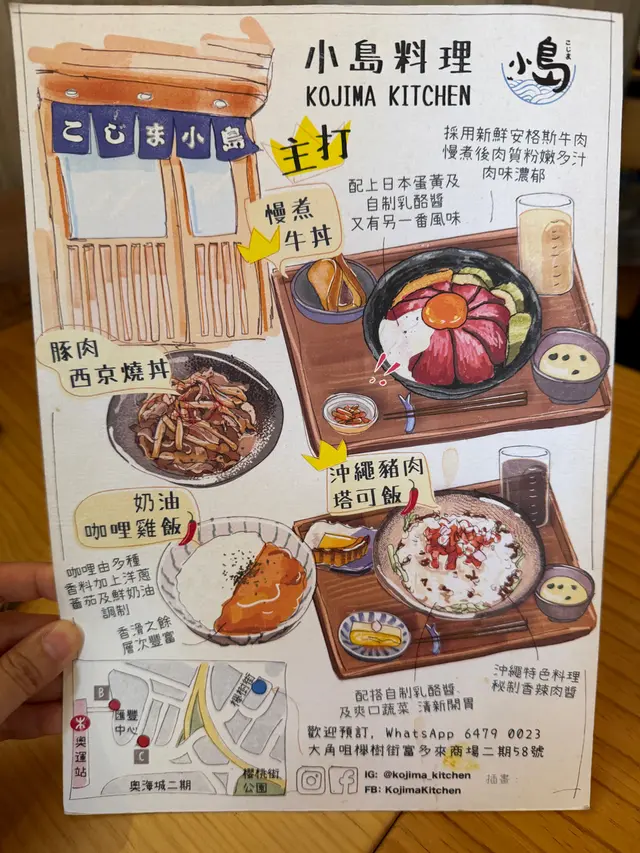 小島料理
KOJIMA KITCHEN
こじま
小島
こじま小島
主打
採用新鮮安格斯牛肉
慢煮後肉質粉嫩多汁
肉味濃郁
配上日本蛋黃及
自制乳酪醬
又有另一番風味
慢煮
牛丼
!!
豚肉
西京燒丼
沖繩豬肉
塔可飯
奶油
咖哩雞飯
咖哩由多種
香料加上洋蔥
蕃茄及鮮奶油
調制
香滑之餘
層次豐富
沖繩特色料理
秘制香辣肉醬
配搭自制乳酪醬
及爽口蔬菜 清新開胃
櫸樹街
B
匯豐
中心
C
奧運站
奧海城二期
櫻桃街
公園
歡迎預訂, WhatsApp 6479 0023
大角咀櫸樹街富多來商場二期58號
IG: @kojima_kitchen
FB: KojimaKitchen
插畫: